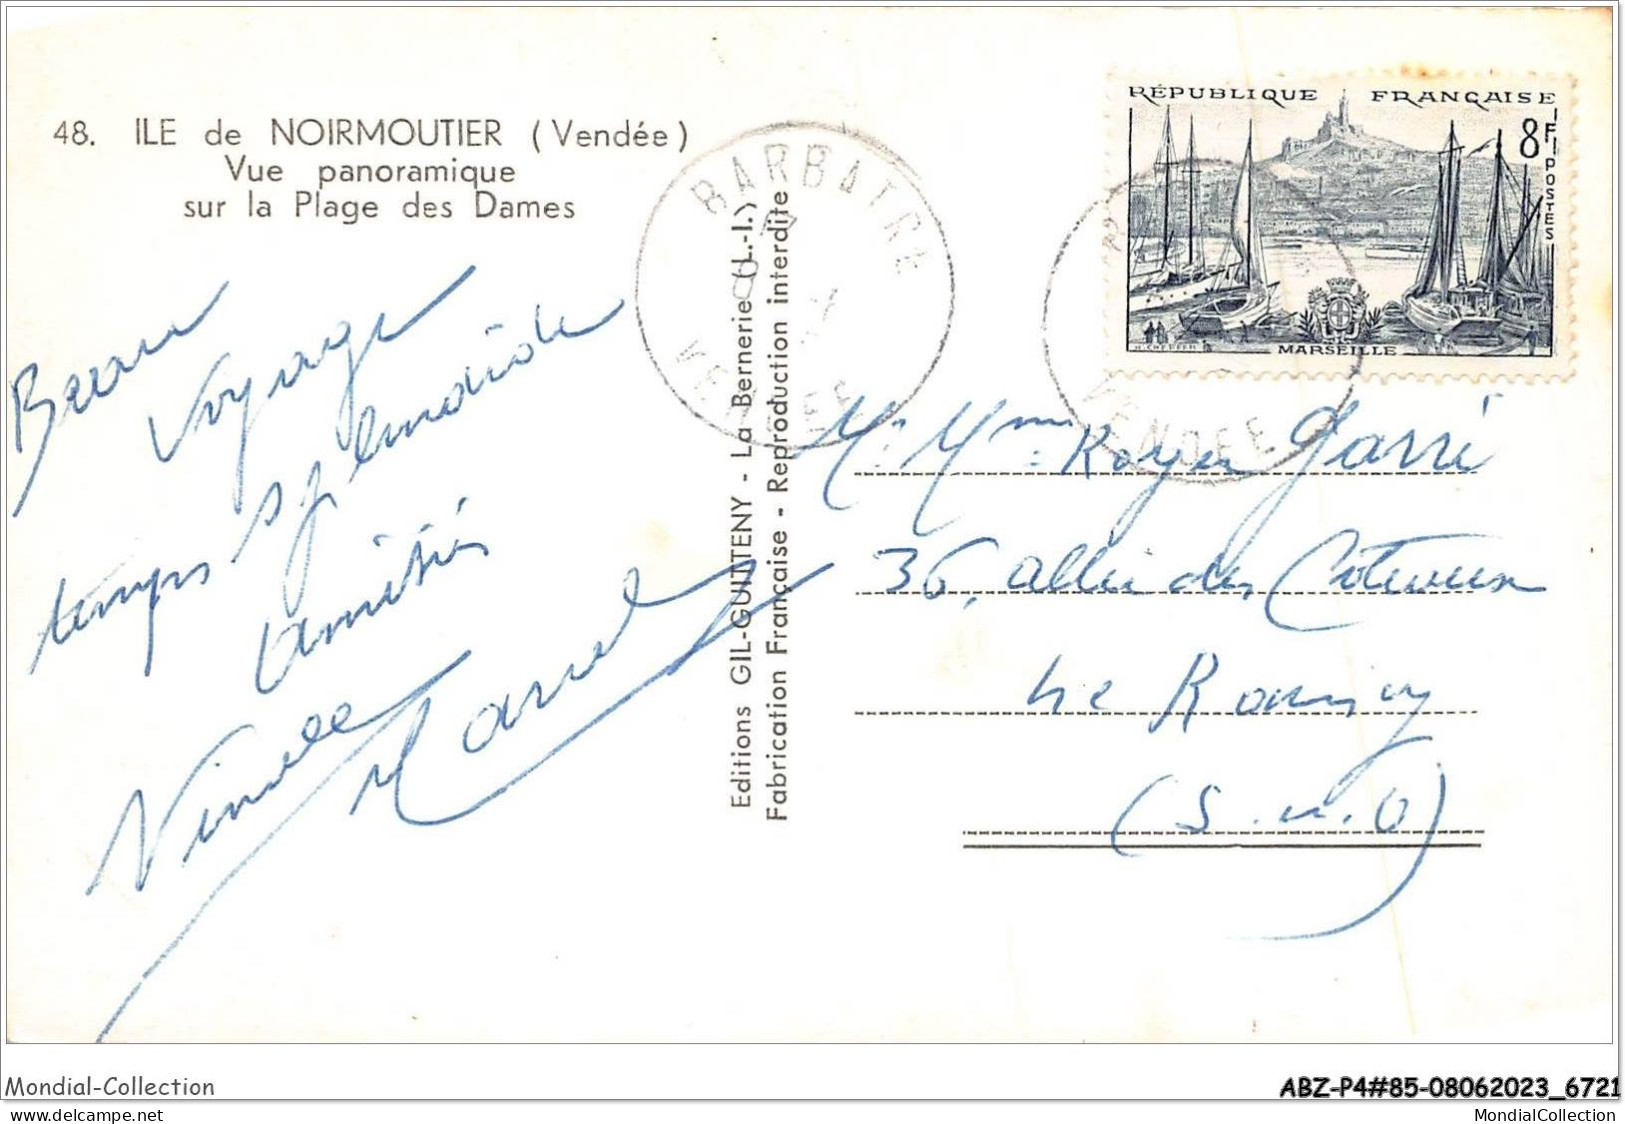 48. ILE de NOIRMOUTIER (Vendée)
Vue panoramique
sur la Plage des Dames
Beau
Voyage
temps splendide
amitiés
Editions GIL-GUITTENY - La Bernerie (L.-I.)
Fabrication Française - Reproduction interdite
BARBATRE
VENDEE
RÉPUBLIQUE FRANÇAISE
8F
POSTES
MARSEILLE
VENDEE
Mr Mme Roger Jarri
36, allée des Coteaux
Le Raincy
(S. et O)
Mondial-Collection
ABZ-P4#85-08062023_6721
www.delcampe.net
MondialCollection